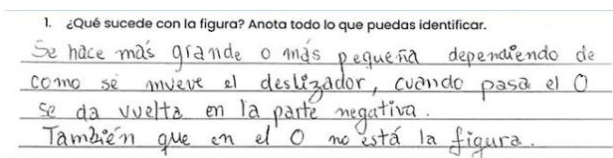 1. ¿Qué sucede con la figura? Anota todo lo que puedas identificar.
Se hace más grande o más pequeña dependiendo de
como se mueve el deslizador, cuando pasa el 0
se da vuelta en la parte negativa.
También que en el 0 no está la figura.